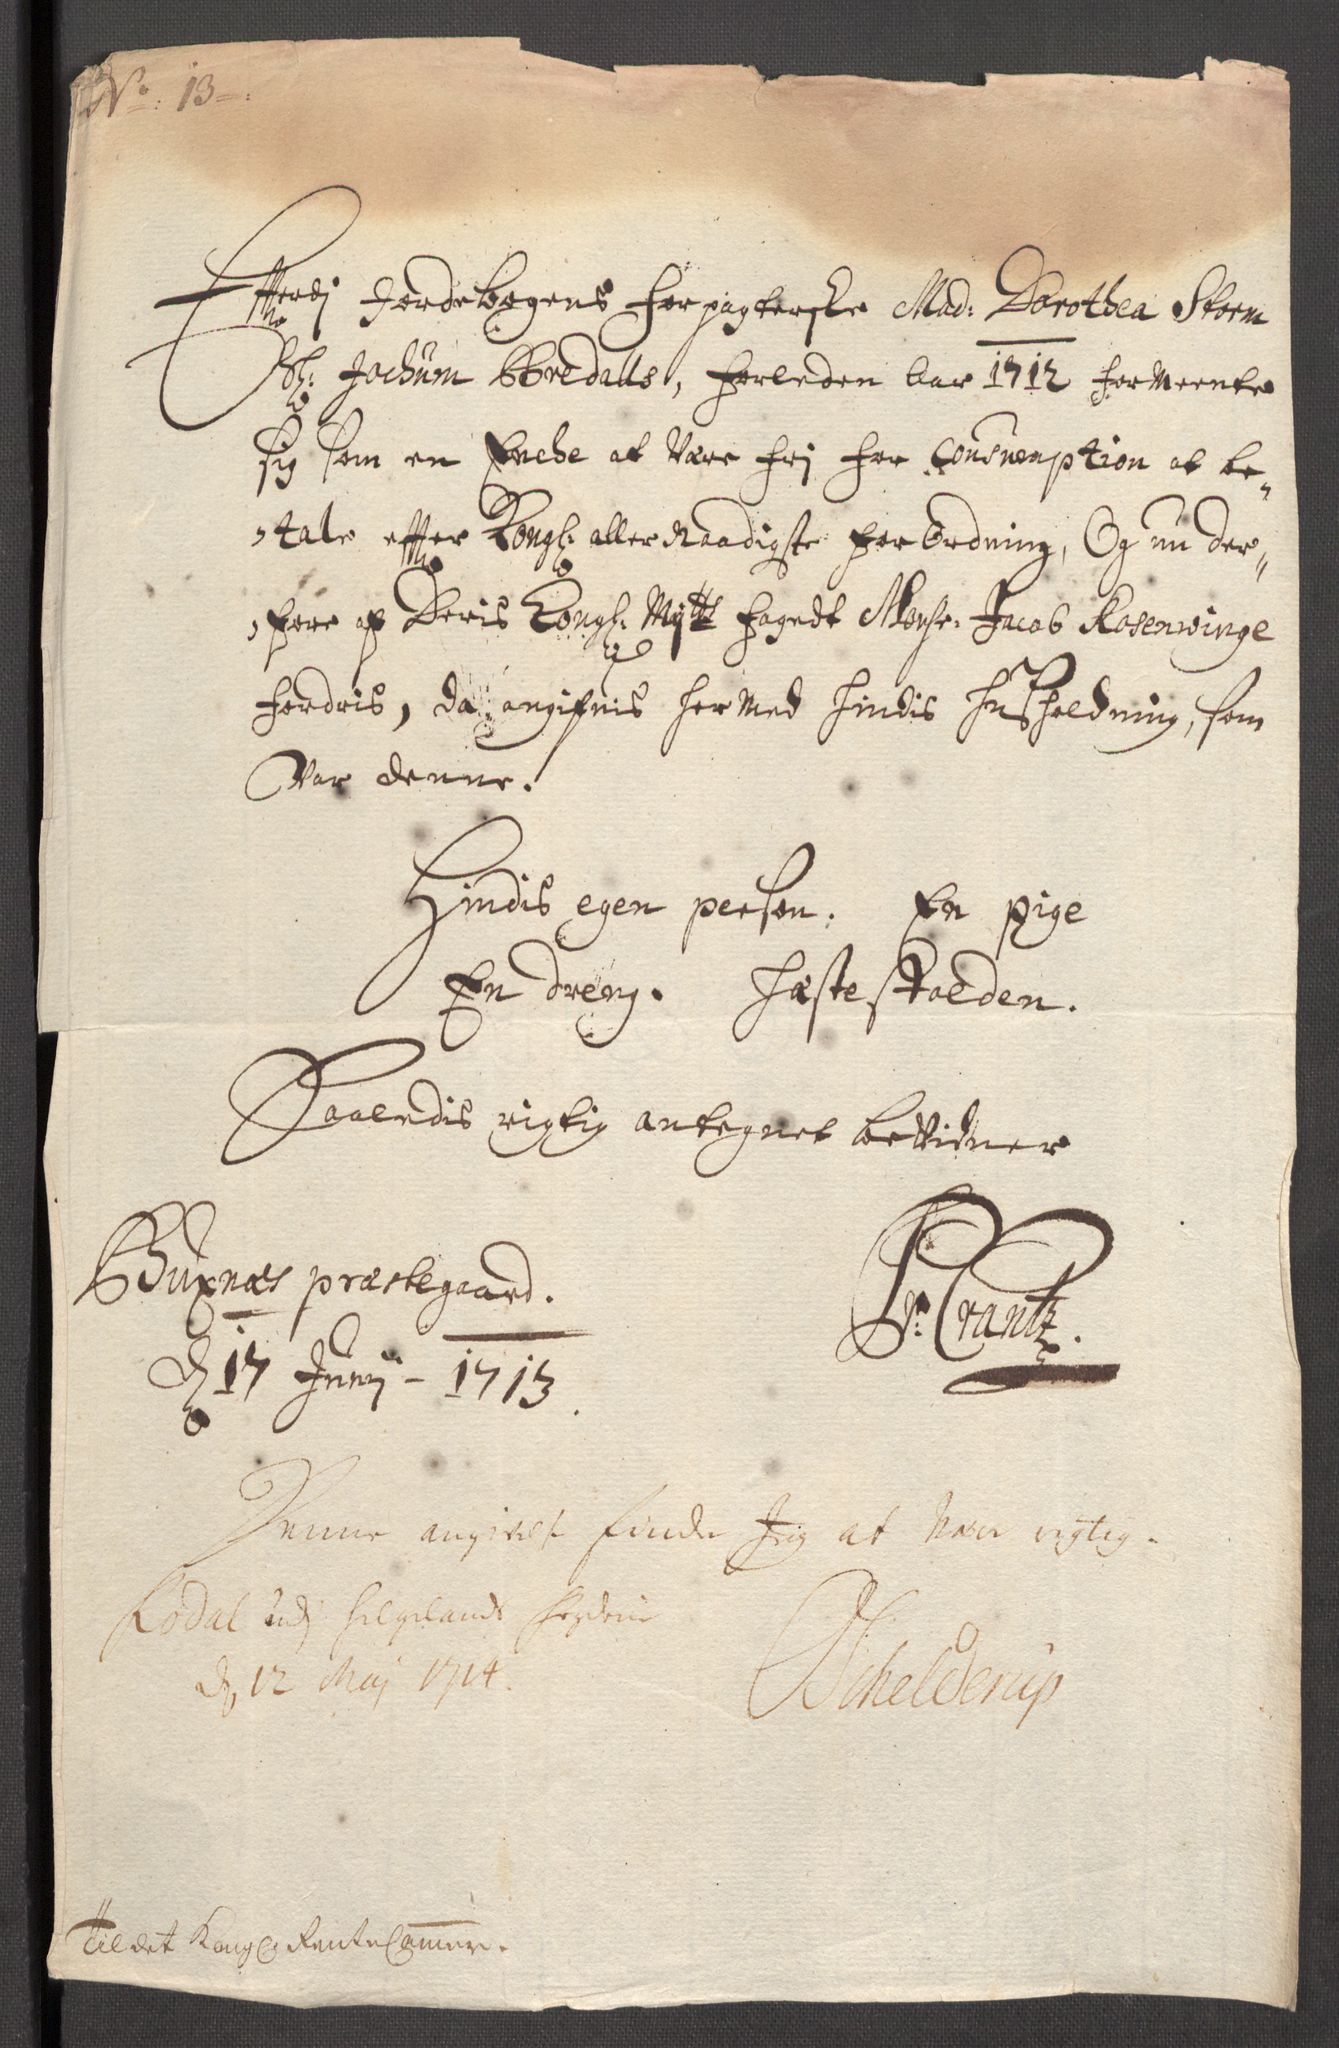 No: 13
Effterdj Jordebogens forpagterske Mad: Dorothea Storm
Sl: Jochum Bredalls, forleden Aar 1712 formeente
sig som en Enche at Være frj for Consumption at be-
tale effter Kongl: aller Naadigste forordning, Og nu der-
fore af Deris Kongl: Mytts fogedt Monsr. Jacob Rosenwinge
fordris, da angifvis her med hindis Husholdning, som
Var denne.
Hindis egen person. En pige
En dreng. Hæste Skolden.
Saaledis rigtig antegnet beVidner
Buxnæs præstegaard.
d 17 Junij 1713.
Pr: Crantz.
Denne angivelse finder Jeg at være rigtig.
Rødal udj Helgelands fogderie
d. 12 Maij 1714.
Schelderup
Til det Kongl. RenteCammer.